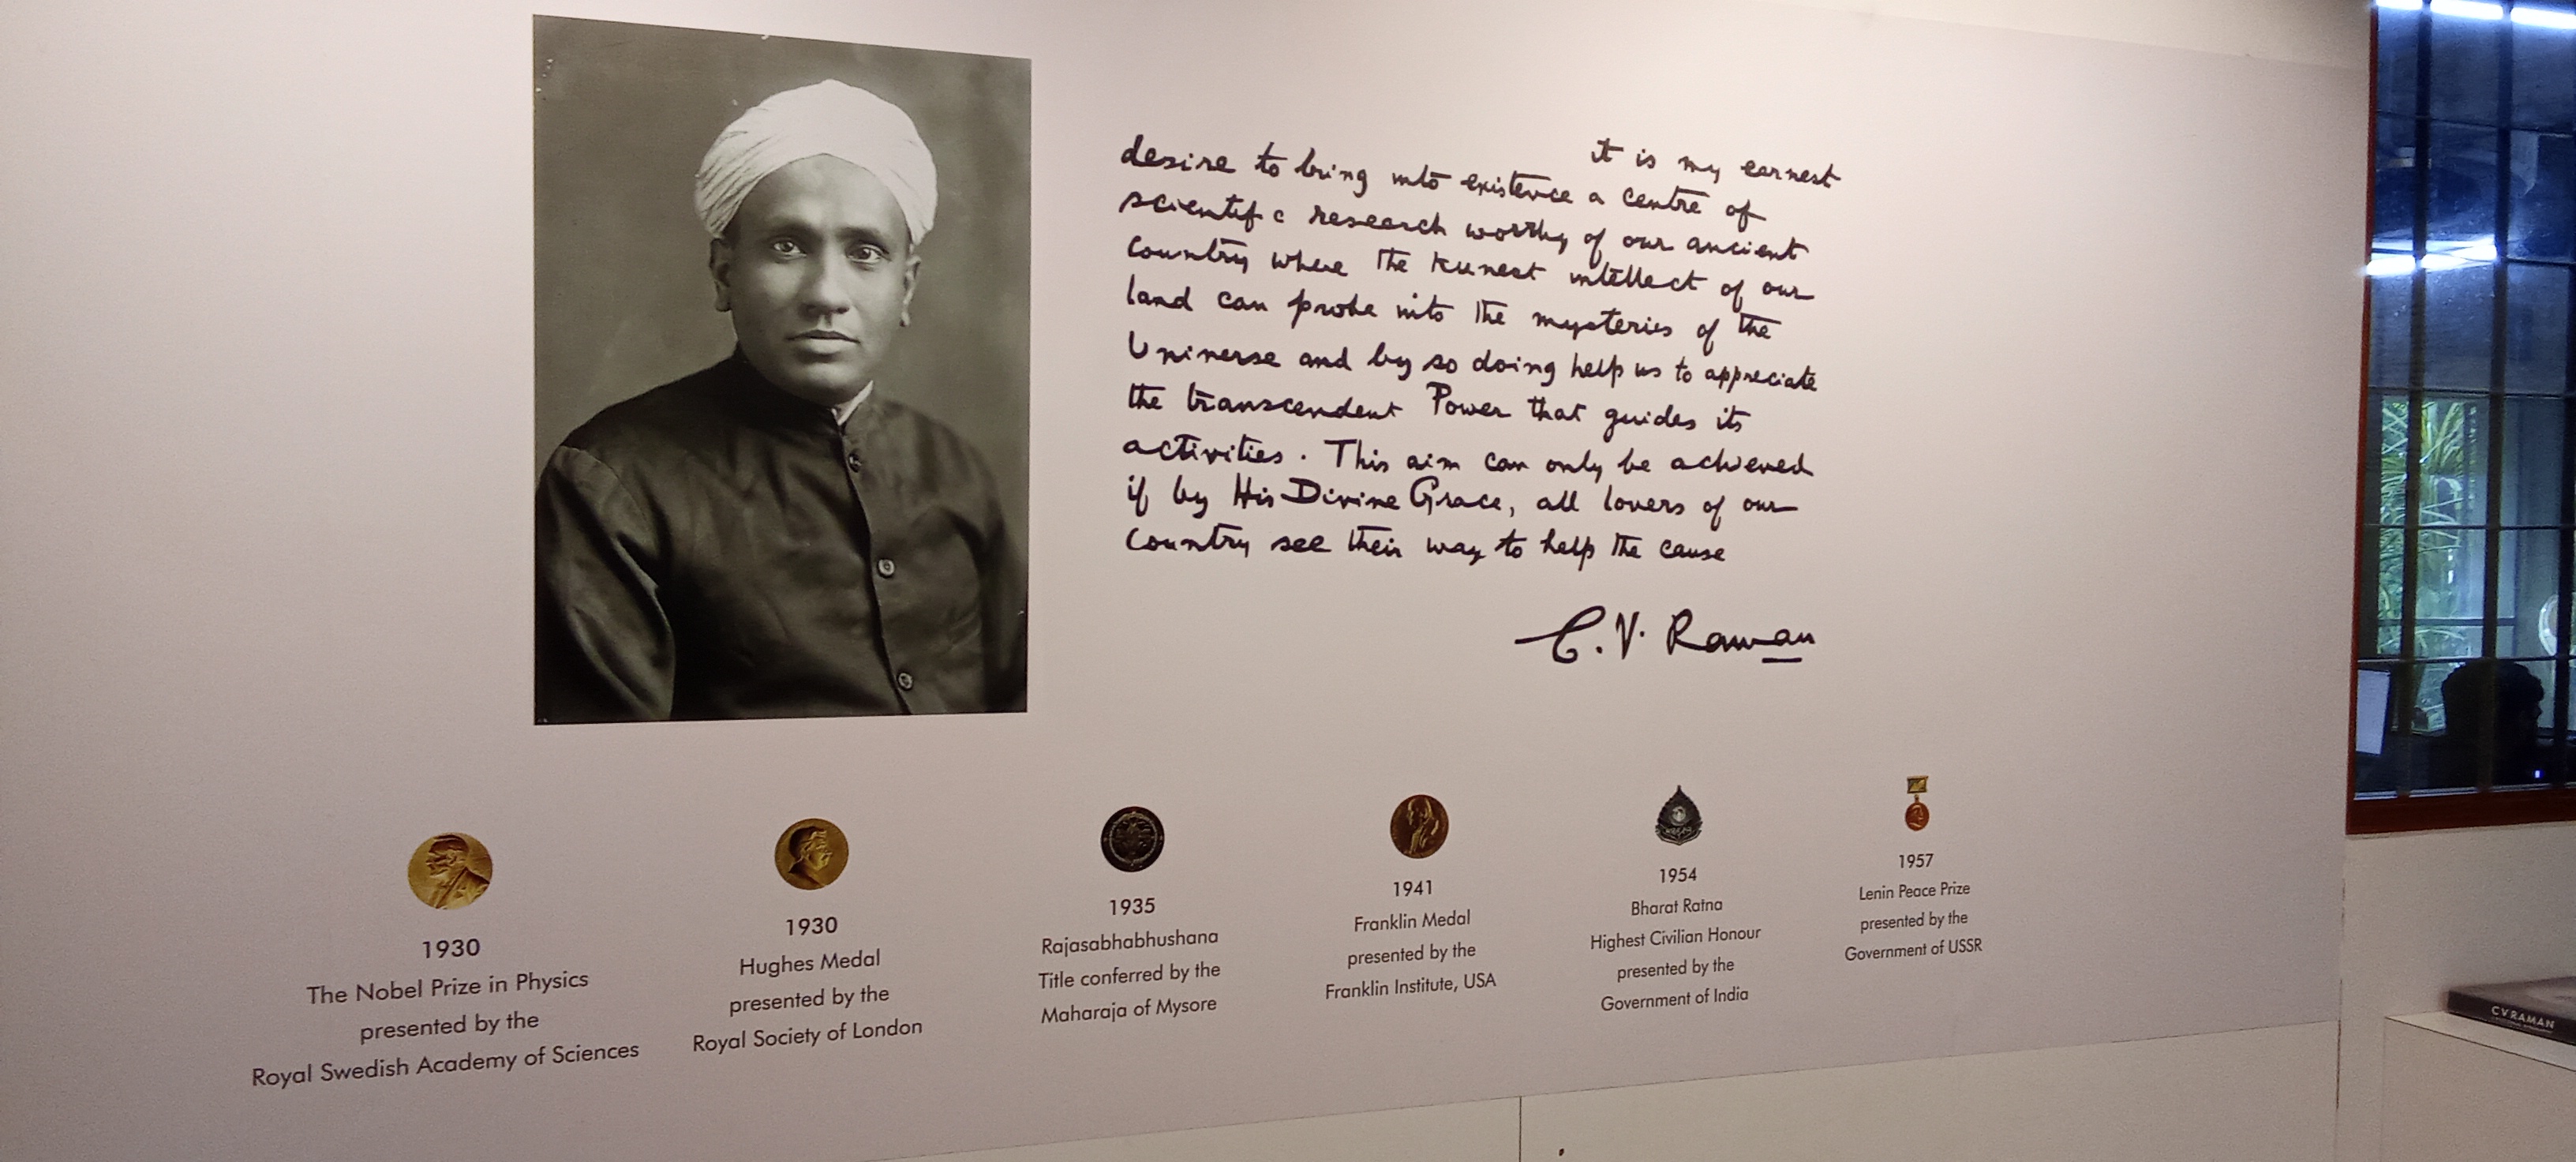 it is my earnest
desire to bring into existence a centre of
scientific research worthy of our ancient
country where the keenest intellect of our
land can probe into the mysteries of the
Universe and by so doing help us to appreciate
the transcendent Power that guides its
activities. This aim can only be achieved
if by His Divine Grace, all lovers of our
country see their way to help the cause
C. V. Raman
1930
The Nobel Prize in Physics
presented by the
Royal Swedish Academy of Sciences
1930
Hughes Medal
presented by the
Royal Society of London
1935
Rajasabhabhushana
Title conferred by the
Maharaja of Mysore
1941
Franklin Medal
presented by the
Franklin Institute, USA
1954
Bharat Ratna
Highest Civilian Honour
presented by the
Government of India
1957
Lenin Peace Prize
presented by the
Government of USSR
CVRAMAN